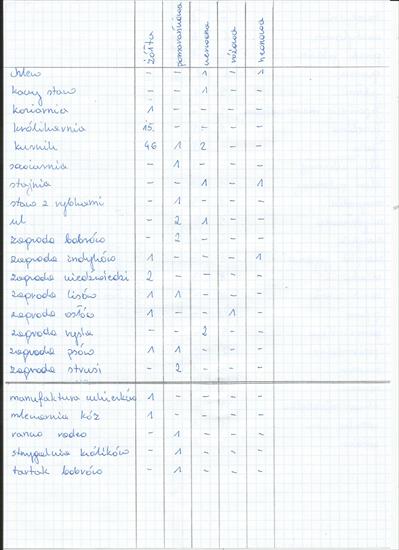 żółta pomarańczowa czerwona różowa neonowa
chlew - - 1 - 1
koci staw - - 1 - -
koziarnia 1 - - - -
królikarnia 15. - - - -
kurnik 46 1 2 - -
owczarnia - 1 - - -
stajnia - - 1 - 1
staw z rybkami - 1 - - -
ul - 2 1 - -
zagroda bobrów - 2 - - -
zagroda indyków 1 - - - 1
zagroda niedźwiedzi 2 - - - -
zagroda lisów 1 1 - - -
zagroda osłów 1 - - 1 -
zagroda rysia - - 2 - -
zagroda psów 1 1 - - -
zagroda strusi - 2 - - -
manufaktura 1 - - - -
mleczarnia kóz 1 - - - -
ranczo rodeo - 1 - - -
strzygalnia królików - 1 - - -
tartak bobrów - 1 - - -